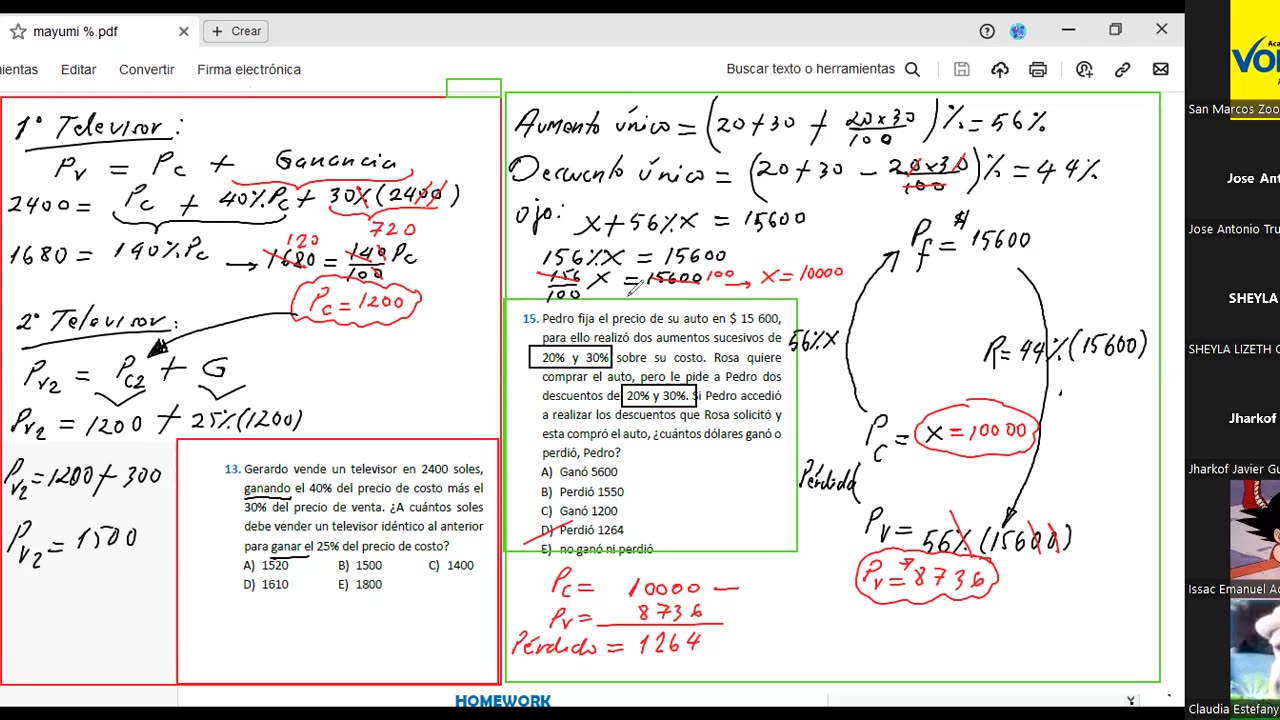 mayumi %.pdf
Crear
ientas Editar Convertir Firma electrónica
Buscar texto o herramientas
1° Televisor:
Pv = Pc + Ganancia
2400 = Pc + 40%Pc + 30%(2400)
720
1680 = 140%Pc → 1680 = 140/100 Pc
120
Pc = 1200
2° Televisor:
Pv2 = Pc2 + G
Pv2 = 1200 + 25%(1200)
Pv2 = 1200 + 300
Pv2 = 1500
13. Gerardo vende un televisor en 2400 soles,
ganando el 40% del precio de costo más el
30% del precio de venta. ¿A cuántos soles
debe vender un televisor idéntico al anterior
para ganar el 25% del precio de costo?
A) 1520 B) 1500 C) 1400
D) 1610 E) 1800
Aumento único = (20+30 + 20x30/100)% = 56%
Descuento único = (20+30 - 20x30/100)% = 44%
ojo: x+56%x = 15600
156%x = 15600
156/100 x = 15600 100 → x = 10000
15. Pedro fija el precio de su auto en $ 15 600,
para ello realizó dos aumentos sucesivos de
20% y 30% sobre su costo. Rosa quiere
comprar el auto, pero le pide a Pedro dos
descuentos de 20% y 30%. Si Pedro accedió
a realizar los descuentos que Rosa solicitó y
esta compró el auto, ¿cuántos dólares ganó o
perdió, Pedro?
A) Ganó 5600
B) Perdió 1550
C) Ganó 1200
D) Perdió 1264
E) no ganó ni perdió
Pf = $ 15600
56%x
R = 44%(15600)
Pc = x = 10000
Pérdida
Pv = 56%(15600)
Pv = 8736
Pc = 10000 —
Pv = 8736
Pérdido = 1264
HOMEWORK
Aca
VO
San Marcos Zoo
Jose Ant
Jose Antonio Tru
SHEYLA
SHEYLA LIZETH G
Jharkof
Jharkof Javier Gu
Issac Emanuel Ac
Claudia Estefany